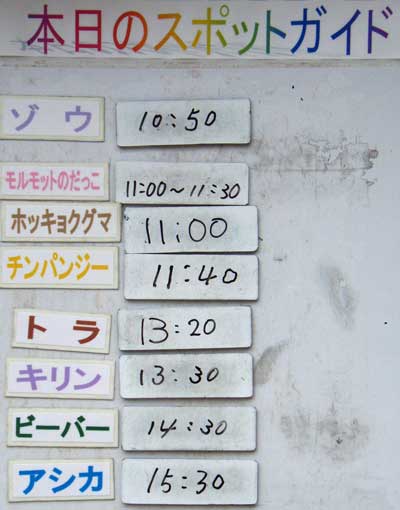 本日のスポットガイド
ゾウ 10:50
モルモットのだっこ 11:00～11:30
ホッキョクグマ 11:00
チンパンジー 11:40
トラ 13:20
キリン 13:30
ビーバー 14:30
アシカ 15:30